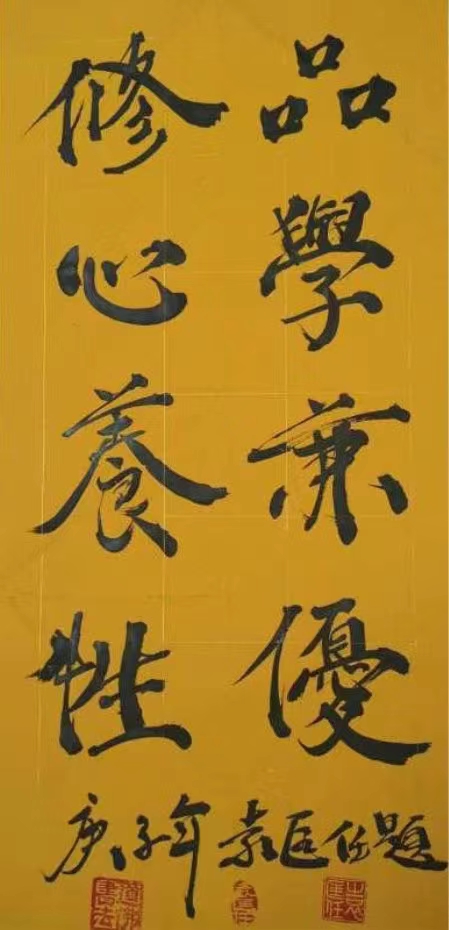 品學兼優
修心養性
庚子年 袁 任題